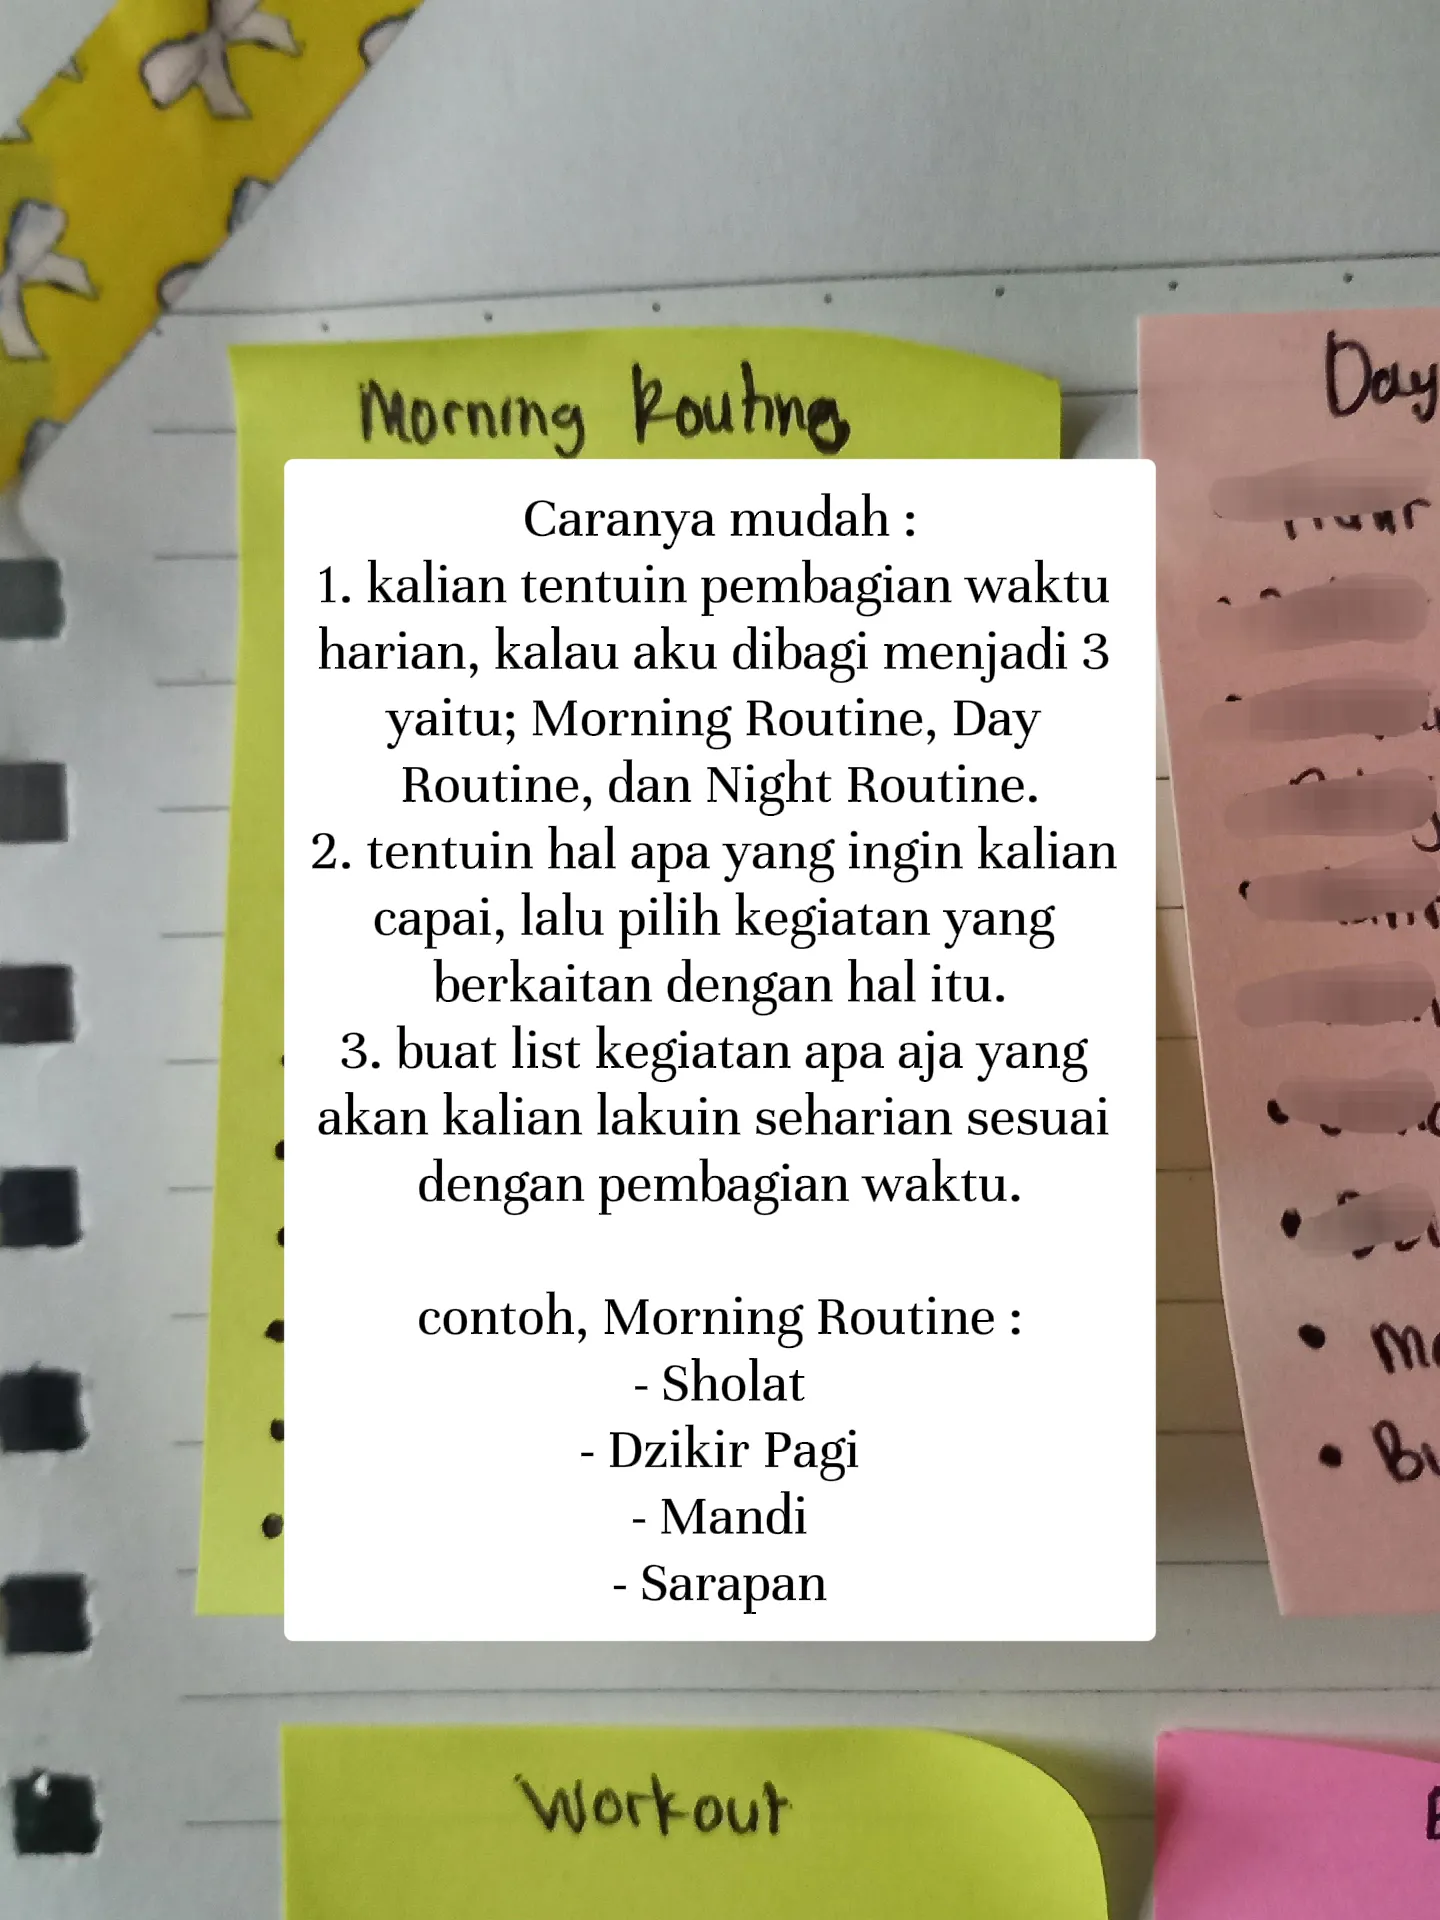 Morning Routine
Day
Caranya mudah :
1. kalian tentuin pembagian waktu
harian, kalau aku dibagi menjadi 3
yaitu; Morning Routine, Day
Routine, dan Night Routine.
2. tentuin hal apa yang ingin kalian
capai, lalu pilih kegiatan yang
berkaitan dengan hal itu.
3. buat list kegiatan apa aja yang
akan kalian lakuin seharian sesuai
dengan pembagian waktu.
contoh, Morning Routine :
- Sholat
- Dzikir Pagi
- Mandi
- Sarapan
Workout